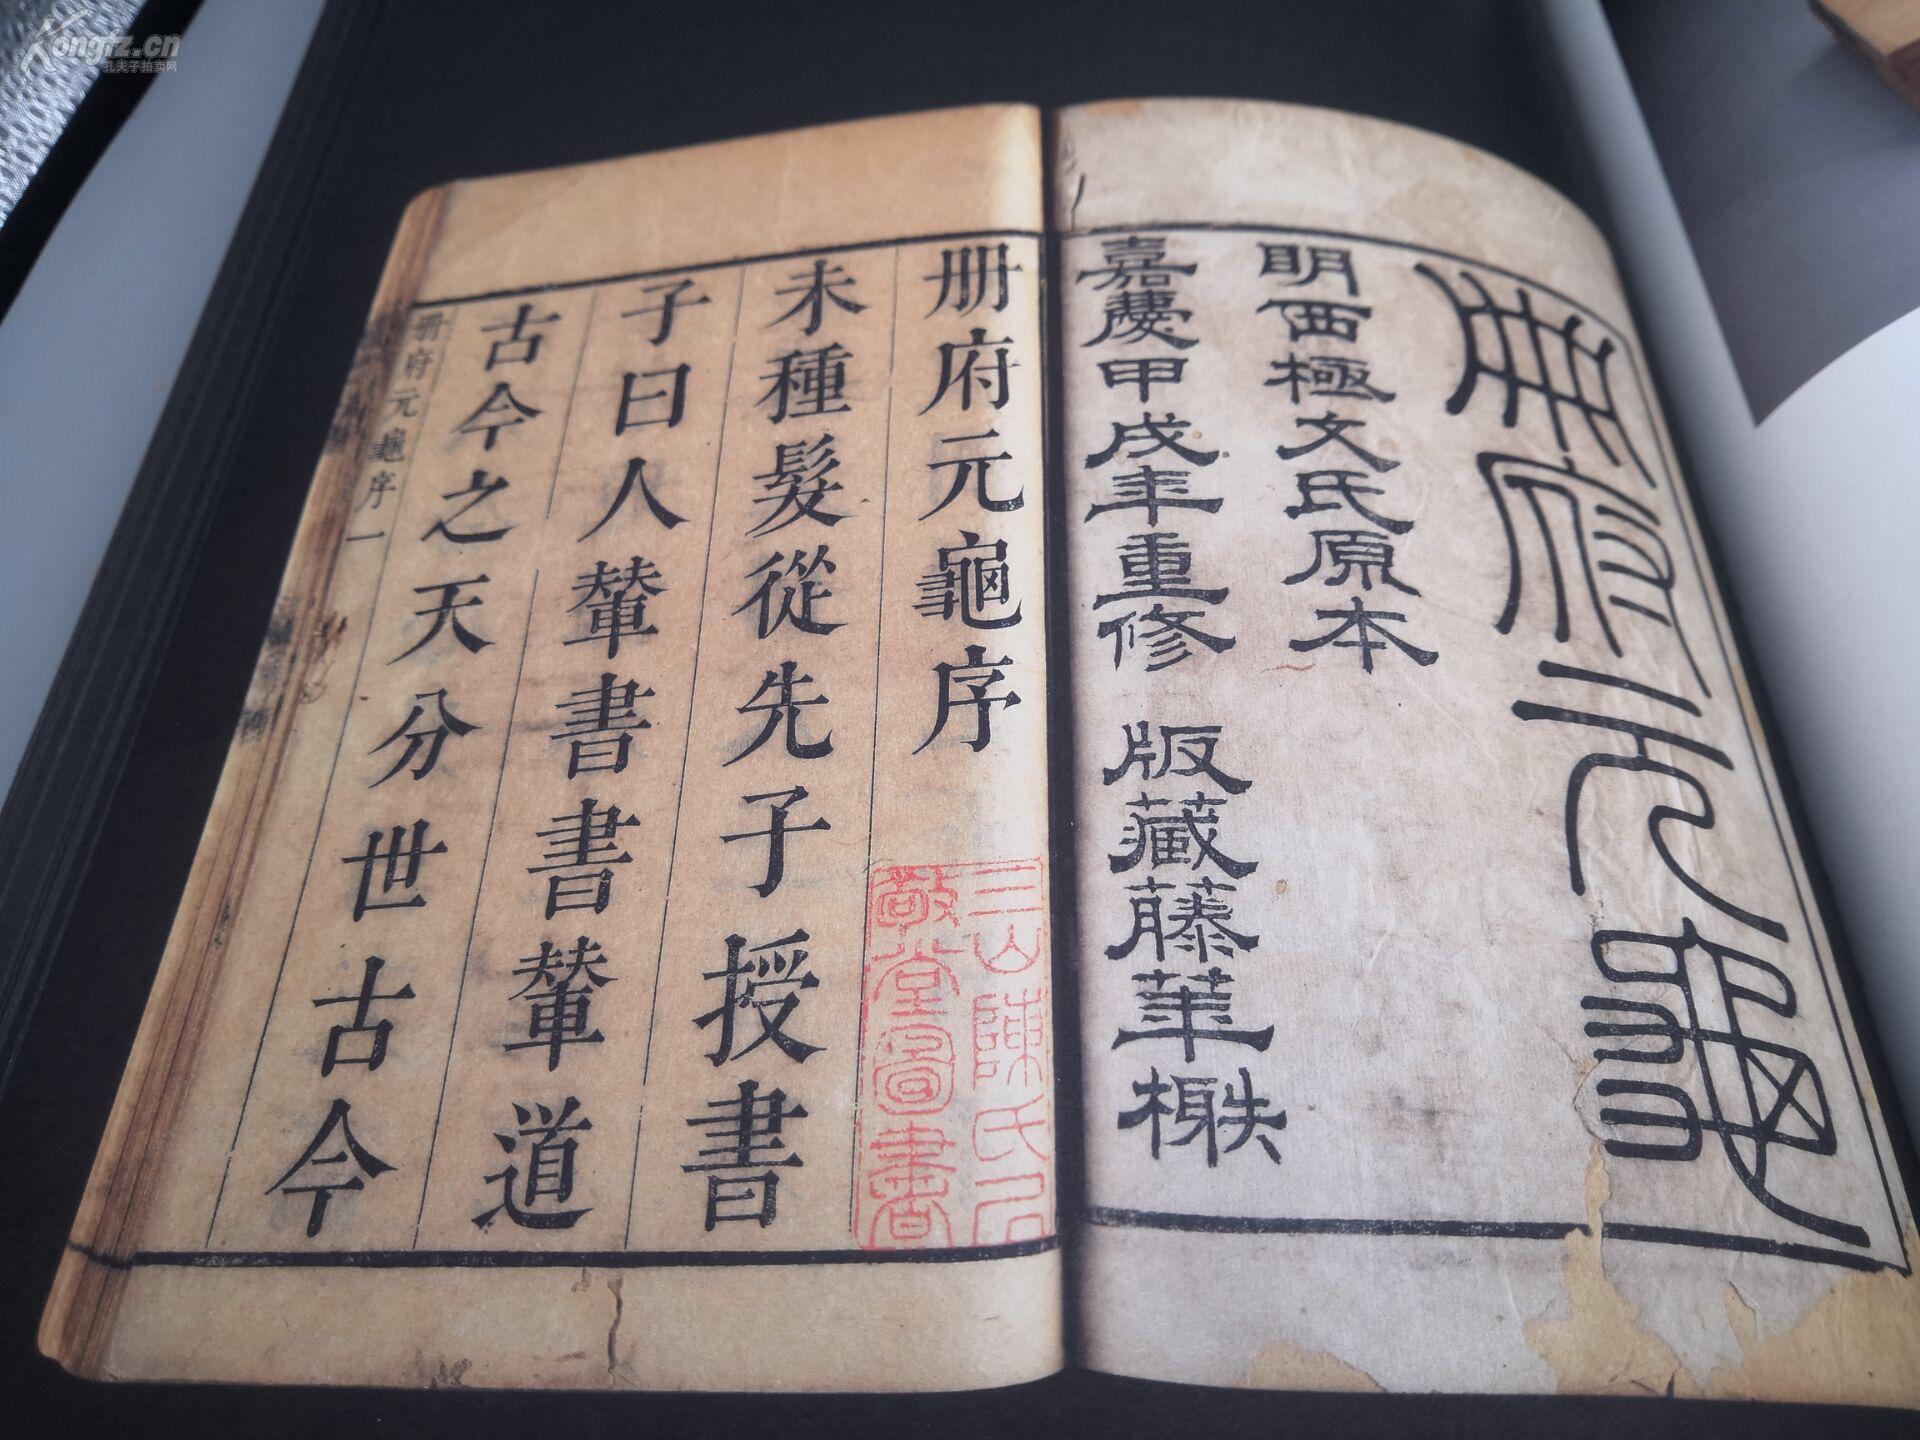 Kongfz.cn
孔夫子拍卖网
册府元龜
明西極文氏原本
嘉慶甲戌年重修 版藏藤華榭
册府元龜序
未種髮從先子授書
子曰人輦書書輦道
古今之天分世古今
册府元龜序 一
三山陳氏居
敬堂圖書